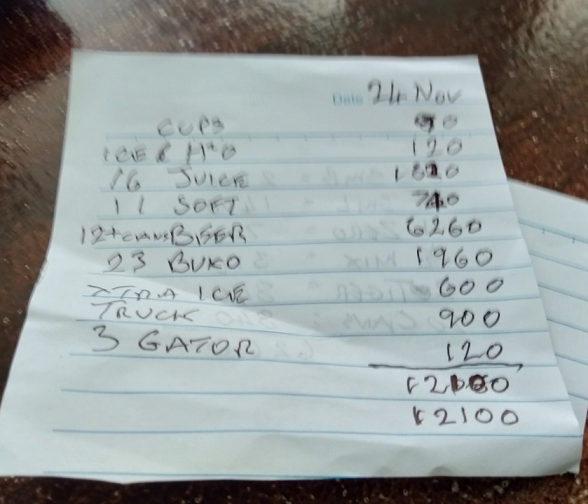 Date 24 Nov
CUPS 90
ICE & H²O 120
16 JUICE
11 SOFT
12+CANS BEER 6260
23 BUKO 1960
XTRA ICE 600
TRUCK 900
3 GATOR 120
12100